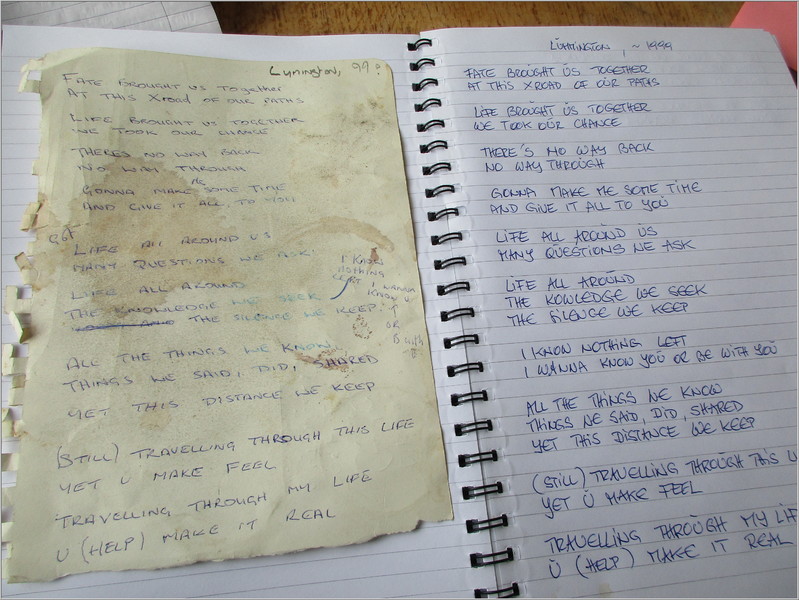 Lymington, 99?
FATE BROUGHT US TOGETHER
AT THIS XROAD OF OUR PATHS
LIFE BROUGHT US TOGETHER
WE TOOK OUR CHANCE
THERES NO WAY BACK
NO WAY THROUGH
ME
GONNA MAKE SOME TIME
AND GIVE IT ALL TO YOU
LIFE All AROUND US
MANY QUESTIONS WE ASK
LIFE ALL AROUND
THE KNOWLEDGE WE SEEK
THE SILENCE WE KEEP
I KNOW
NOTHING
LEFT I WANNA
KNOW U
OR
B with
U
ALL THE THINGS WE KNOW
THINGS WE SAID, DID, SHARED
YET THIS DISTANCE WE KEEP
(STILL) TRAVELLING THROUGH THIS LIFE
YET U MAKE FEEL
TRAVELLING THROUGH MY LIFE
U (HELP) MAKE IT REAL
LYMINGTON, ~ 1999
FATE BROUGHT US TOGETHER
AT THIS XROAD OF OUR PATHS
LIFE BROUGHT US TOGETHER
WE TOOK OUR CHANCE
THERE'S NO WAY BACK
NO WAY THROUGH
GONNA MAKE ME SOME TIME
AND GIVE IT ALL TO YOU
LIFE ALL AROUND US
MANY QUESTIONS WE ASK
LIFE ALL AROUND
THE KOWLEDGE WE SEEK
THE SILENCE WE KEEP
I KNOW NOTHING LEFT
I WANNA KNOW YOU OR BE WITH YOU
ALL THE THINGS WE KNOW
THINGS WE SAID, DID, SHARED
YET THIS DISTANCE WE KEEP
(STILL) TRAVELLING THROUGH THIS LI
YET U MAKE FEEL
TRAVELLING THROUGH MY LIF
U (HELP) MAKE IT REAL